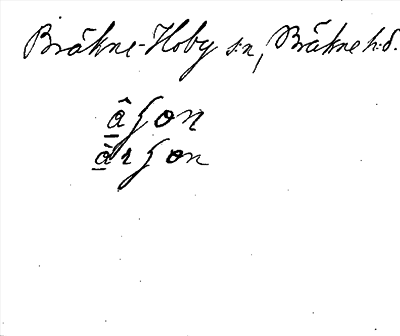 Bräkne-Hoby sn, Bräkne hd.
âʃon
àrʃon